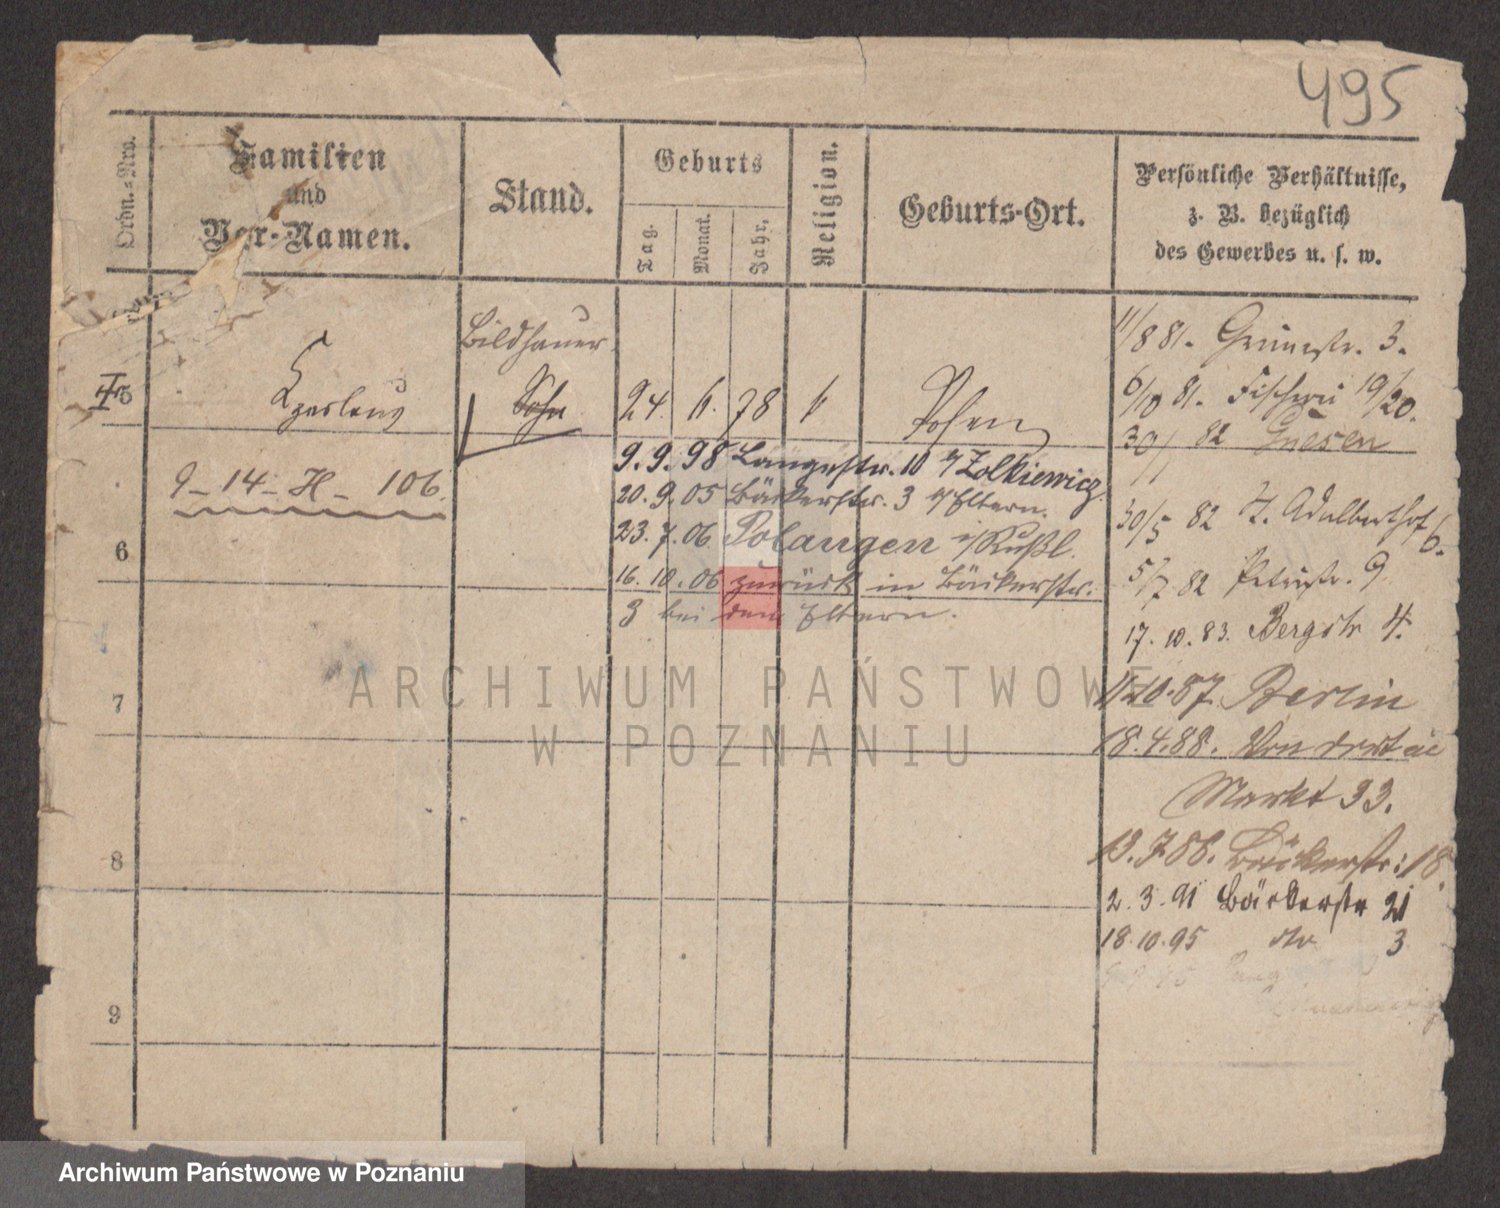 495
Ordn.=Nro.
Familien
und
Vor=Namen.
Stand.
Geburts
Tag.
Monat.
Jahr.
Religion.
Geburts=Ort.
Persönliche Verhältnisse,
z. B. bezüglich
des Gewerbes u. s. w.
Bildhauer
5
Czeslaus
Sohn
24. 6. 78 k Posen
9-14-H-106.
9.9.98 Langestr. 10 Zolkiewicz.
20.9.05 Bäckerstr. 3 Eltern.
23.7.06 Polangen i/Rußl.
16.10.06 zurück in Bäckerstr.
3 bei den Eltern.
6
7
8
9
11/8 81. Grünestr. 3.
6/10 81. Fischerei 19/20.
30/1 82 Gnesen
30/5 82 Z. Adalberthof 6.
5/7 82 Petristr. 9
17.10.83. Bergstr 4.
11.10.87. Berlin
18.4.88. Von dort
Markt 93.
13.7.88. Bäckerstr: 18.
2.3.91 Bäckerstr 21
18.10.95 dto 3
ARCHIWUM PAŃSTWOWE
W POZNANIU
Archiwum Państwowe w Poznaniu